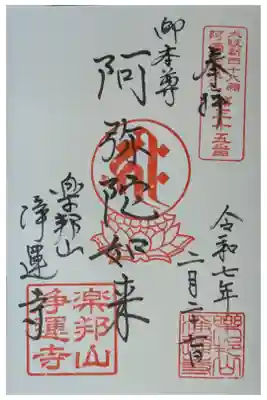 奉拝
御本尊
阿弥陀如来
楽邦山
浄運寺
令和七年
二月二十七日
楽邦山
浄運寺